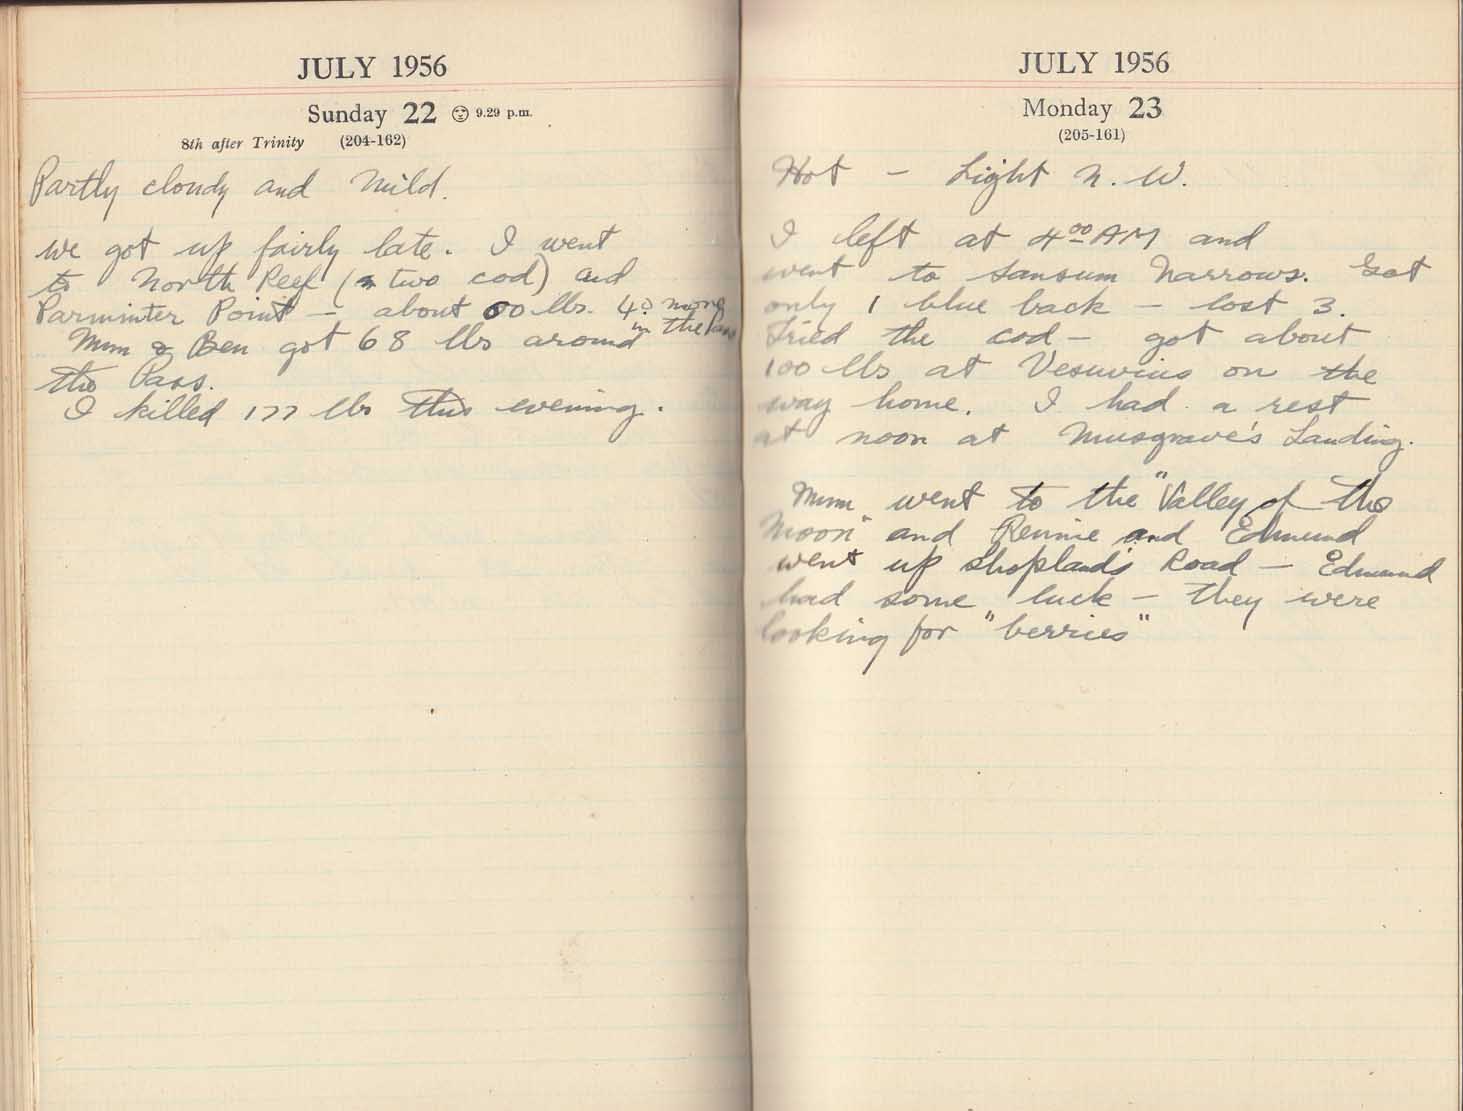 JULY 1956
Sunday 22 9.29 p.m.
8th after Trinity (204-162)
Partly cloudy and mild.
we got up fairly late. I went
to North Reef (two cod) and
Parminter Point - about 00 lbs. 40 more
in the
Mum & Ben got 68 lbs around
the Pass.
I killed 177 lbs this evening.
JULY 1956
Monday 23
(205-161)
Hot - Light N. W.
I left at 4 00 AM and
went to Sansum Narrows. Got
only 1 blue back - lost 3.
Tried the cod - got about
100 lbs at Vesuvius on the
way home. I had a rest
at noon at Musgrave's Landing.
Mum went to the "Valley of the
Moon" and Rennie and Edmund
went up Shopland's Road - Edmund
had some luck - they were
looking for "berries"